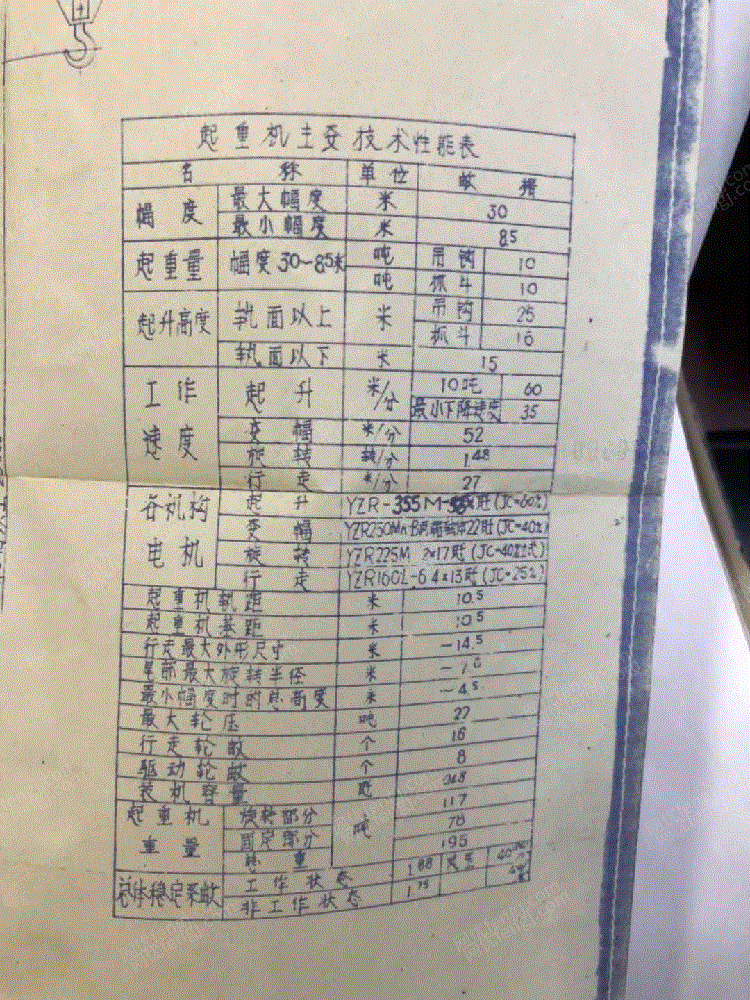 起重机主要技术性能表
名 称 单位 数 据
幅度 最大幅度 米 30
最小幅度 米 8.5
起重量 幅度30~8.5米 吨 吊钩 10
吨 抓斗 10
起升高度 轨面以上 米 吊钩 25
抓斗 16
轨面以下 米 15
工作速度 起升 米/分 10吨 60
最小下降速度 35
变幅 米/分 52
旋转 转/分 1.48
行走 米/分 27
各机构电机 起升 YZR-355M (JC=60%)
变幅 22旺(JC=40%)
旋转 YZR225M 2×17旺(JC=40%)
行走 YZR160L-6 4×13旺(JC=25%)
起重机轨距 米 10.5
起重机基距 米 10.5
行走最大外形尺寸 米 ~14.5
尾部最大旋转半径 米
最小幅度时的总高度 米 ~45
最大轮压 吨 27
行走轮数 个 16
驱动轮数 个 8
装机容量
起重机重量 旋转部分 吨 117
固定部分 78
总重 195
总体稳定系数 工作状态 1.88
非工作状态 1.75